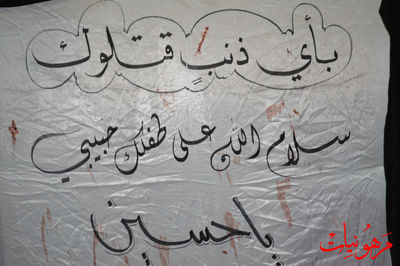 بأي ذنبٍ قتلوك
سلام الله على طفلك حبيبي
يا حسين
مرهونيات